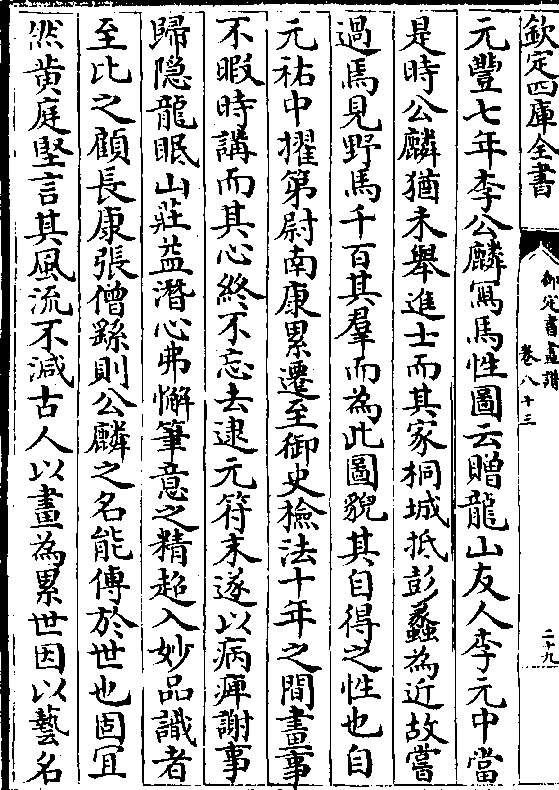 欽定四庫全書
御定書畫譜
卷八十三
二十九
元豐七年李公麟寫馬性圖云贈龍山友人李元中當
是時公麟猶未舉進士而其家桐城抵彭蠡為近故嘗
過馬見野馬千百其羣而為此圖貌其自得之性也自
元祐中擢第尉南康累遷至御史檢法十年之間畫事
不暇時講而其心終不忘去逮元符末遂以病痺謝事
歸隐龍眠山莊益潛心弗懈筆意之精超入妙品識者
至比之顧長康張僧繇則公麟之名能傳於世也固宜
然黄庭堅言其風流不減古人以畫為累世因以藝名